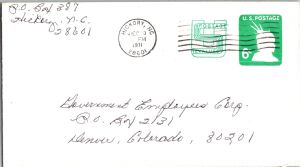 P.O. Box 387
Hickory, N.C.
28601
HICKORY, NC
PM
1971
28601
U.S. POSTAGE
6c
Government Employees Corp.
P.O. Box 2131
Denver, Colorado, 80201